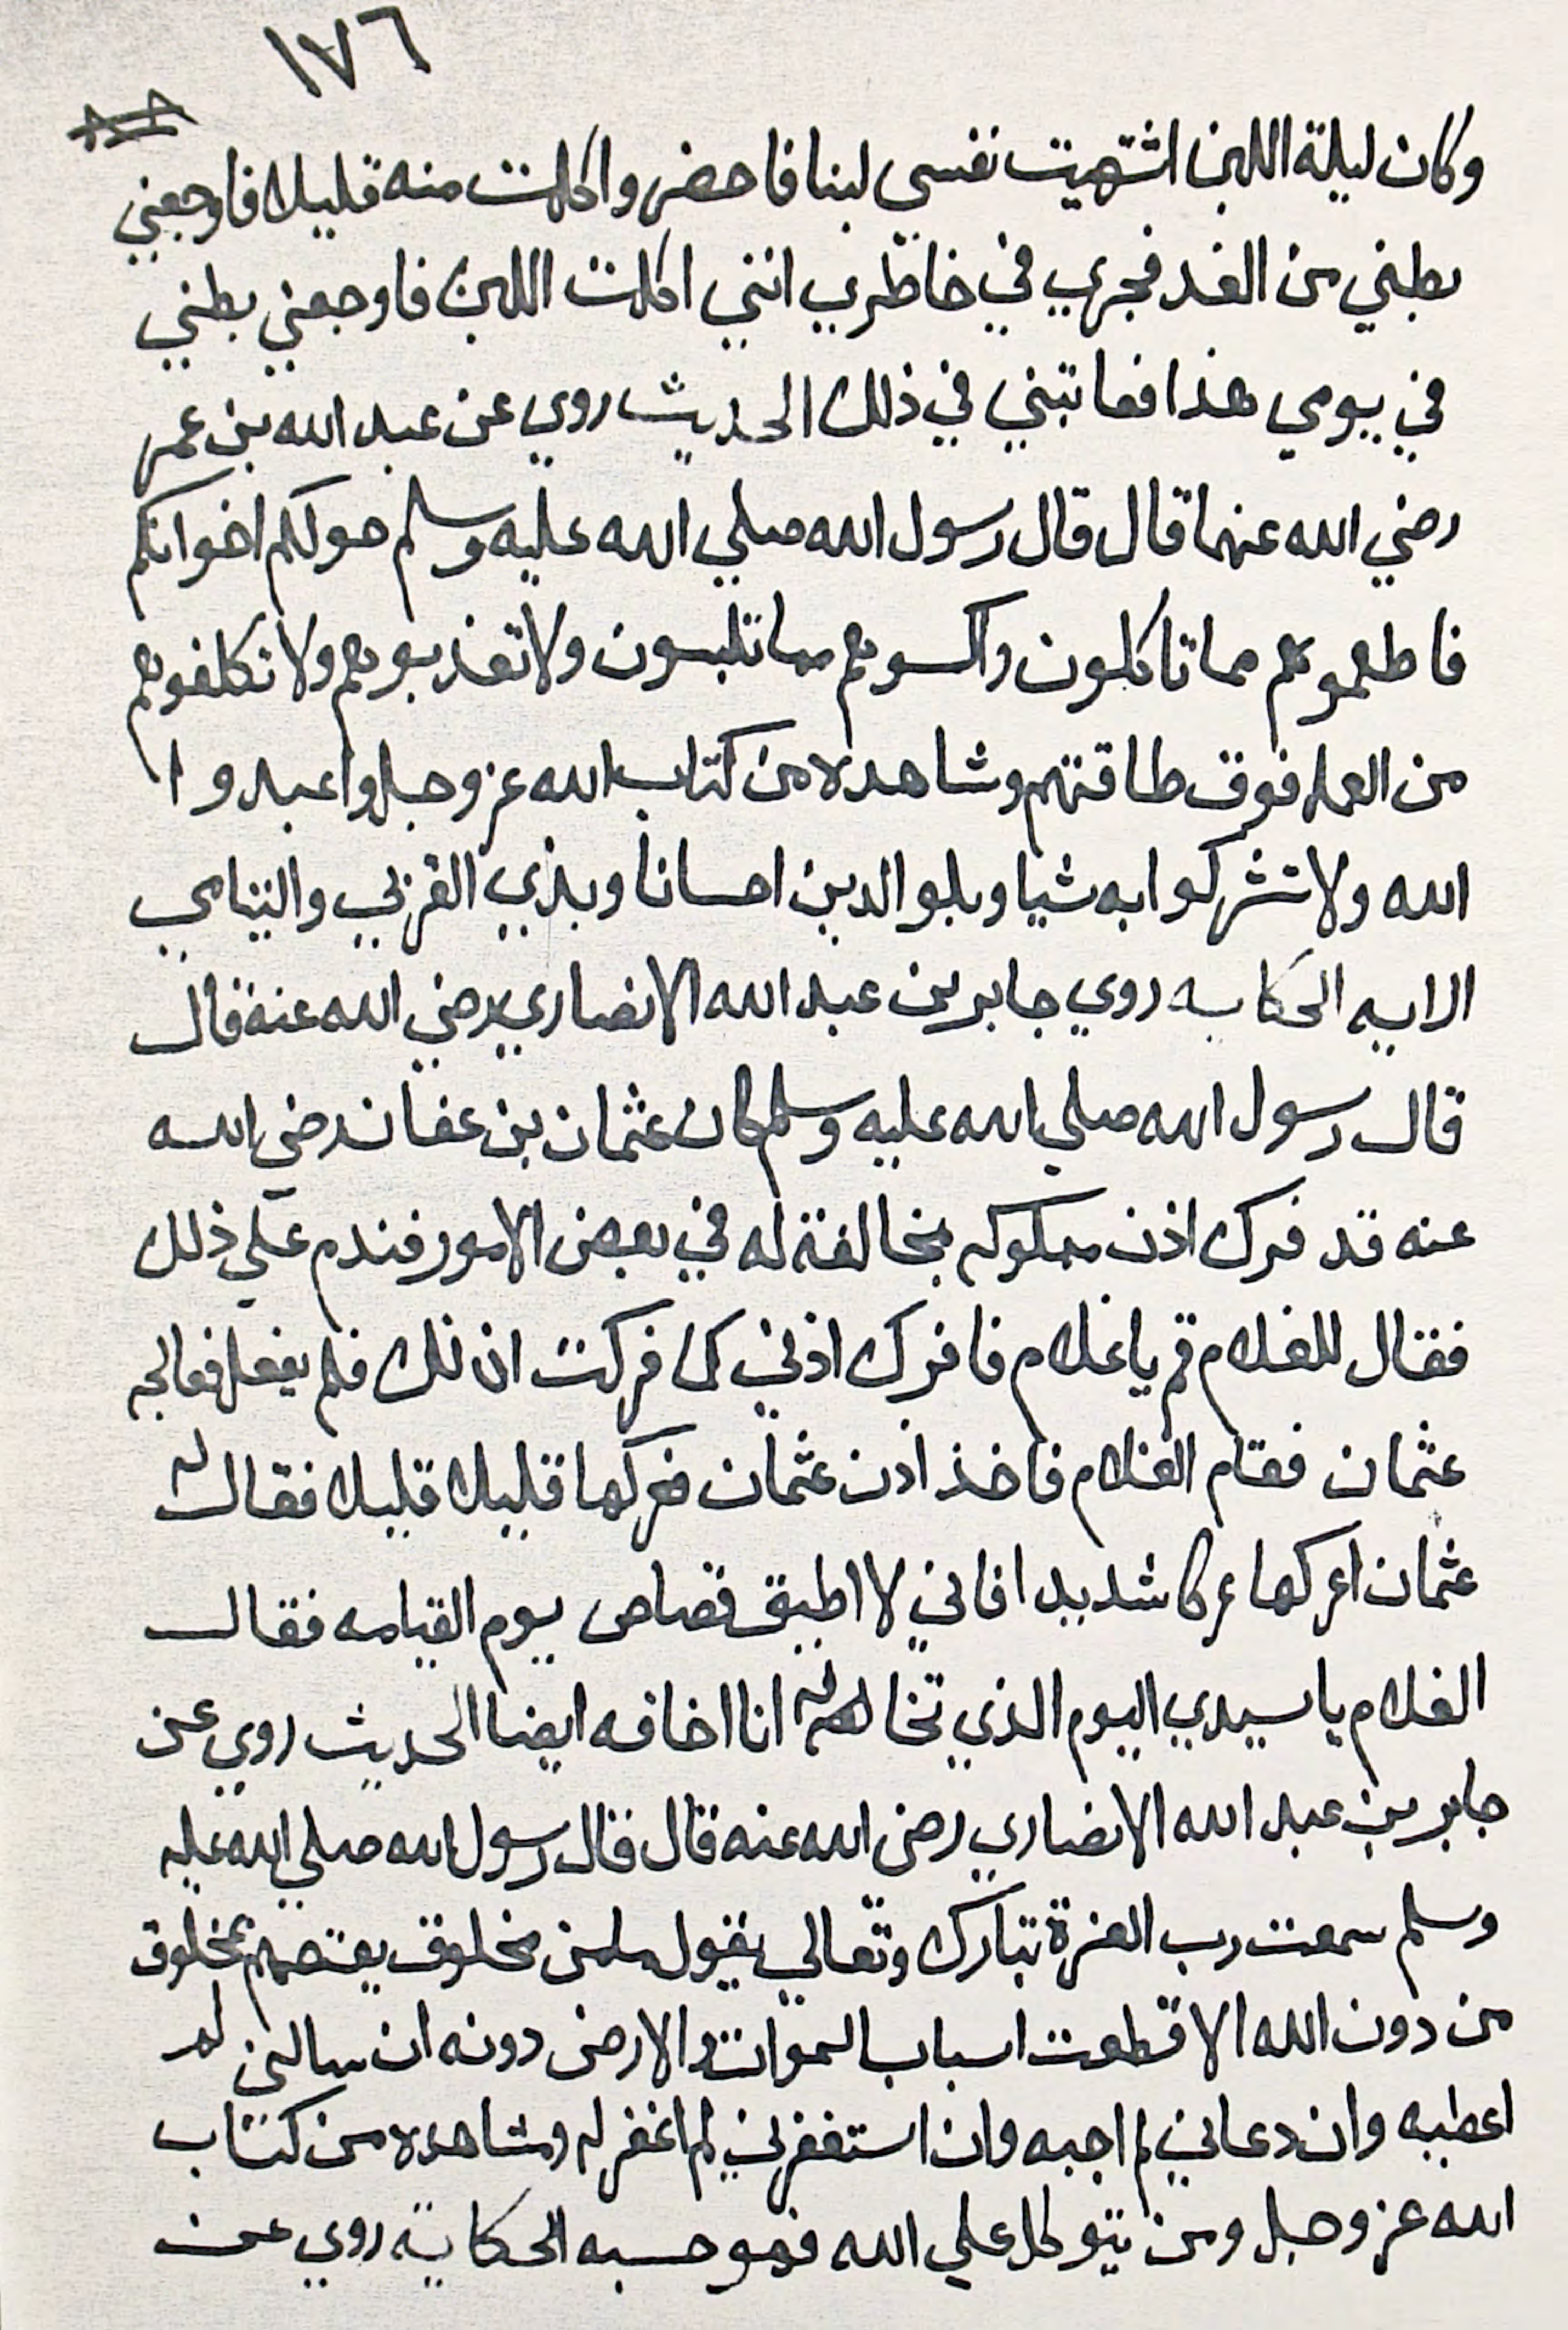 ١٧٦
وكان ليلة اللبن اشتهيت نفسي لبنا فاحضر واكلت منه قليلا فاوجعني
بطني من الغد فجري في خاطري انني اكلت اللبن فاوجعني بطني
في يومي هذا فعاتبني في ذلك الحديث روي عن عبد الله بن عمر
رضي الله عنهما قال قال رسول الله صلي الله عليه وسلم حولكم اخوانكم
فاطعموهم مما تاكلون واكسوهم مما تلبسون ولا تعذبوهم ولا تكلفوهم
من العمل فوق طاقتهم وشاهده من كتاب الله عز وجل واعبدوا
الله ولا تشركوا به شيا وبلوالدين احسانا وبذي القربي واليتامي
الايه الحكايه روي جابر بن عبد الله الانصاري رضي الله عنه قال
قال رسول الله صلي الله عليه وسلم كان عثمان بن عفان رضي الله
عنه قد فرك اذن مملوكه بمخالفة له في بعض الامور فندم علي ذلك
فقال للغلام قم يا غلام فافرك اذني كما فركت اذنك فلم يفعل فعالجه
عثمان فقام الغلام فاخذ اذن عثمان ففركها قليلا قليلا فقال له
عثمان اعركها عركا شديدا فاني لا اطيق قصاص يوم القيامه فقال
الغلام يا سيدي اليوم الذي تخافه انا اخافه ايضا الحديث روي عن
جابر بن عبد الله الانصاري رضي الله عنه قال قال رسول الله صلي الله عليه
وسلم سمعت رب العزة تبارك وتعالي يقول مامن مخلوق يعتصم بمخلوق
من دون الله الا قطعت اسباب السموات والارض دونه ان سالني لم
اعطيه وان دعاني لم اجبه وان استغفرني لم اغفر له وشاهده من كتاب
الله عز وجل ومن يتوكل علي الله فهو حسبه الحكاية روي عن